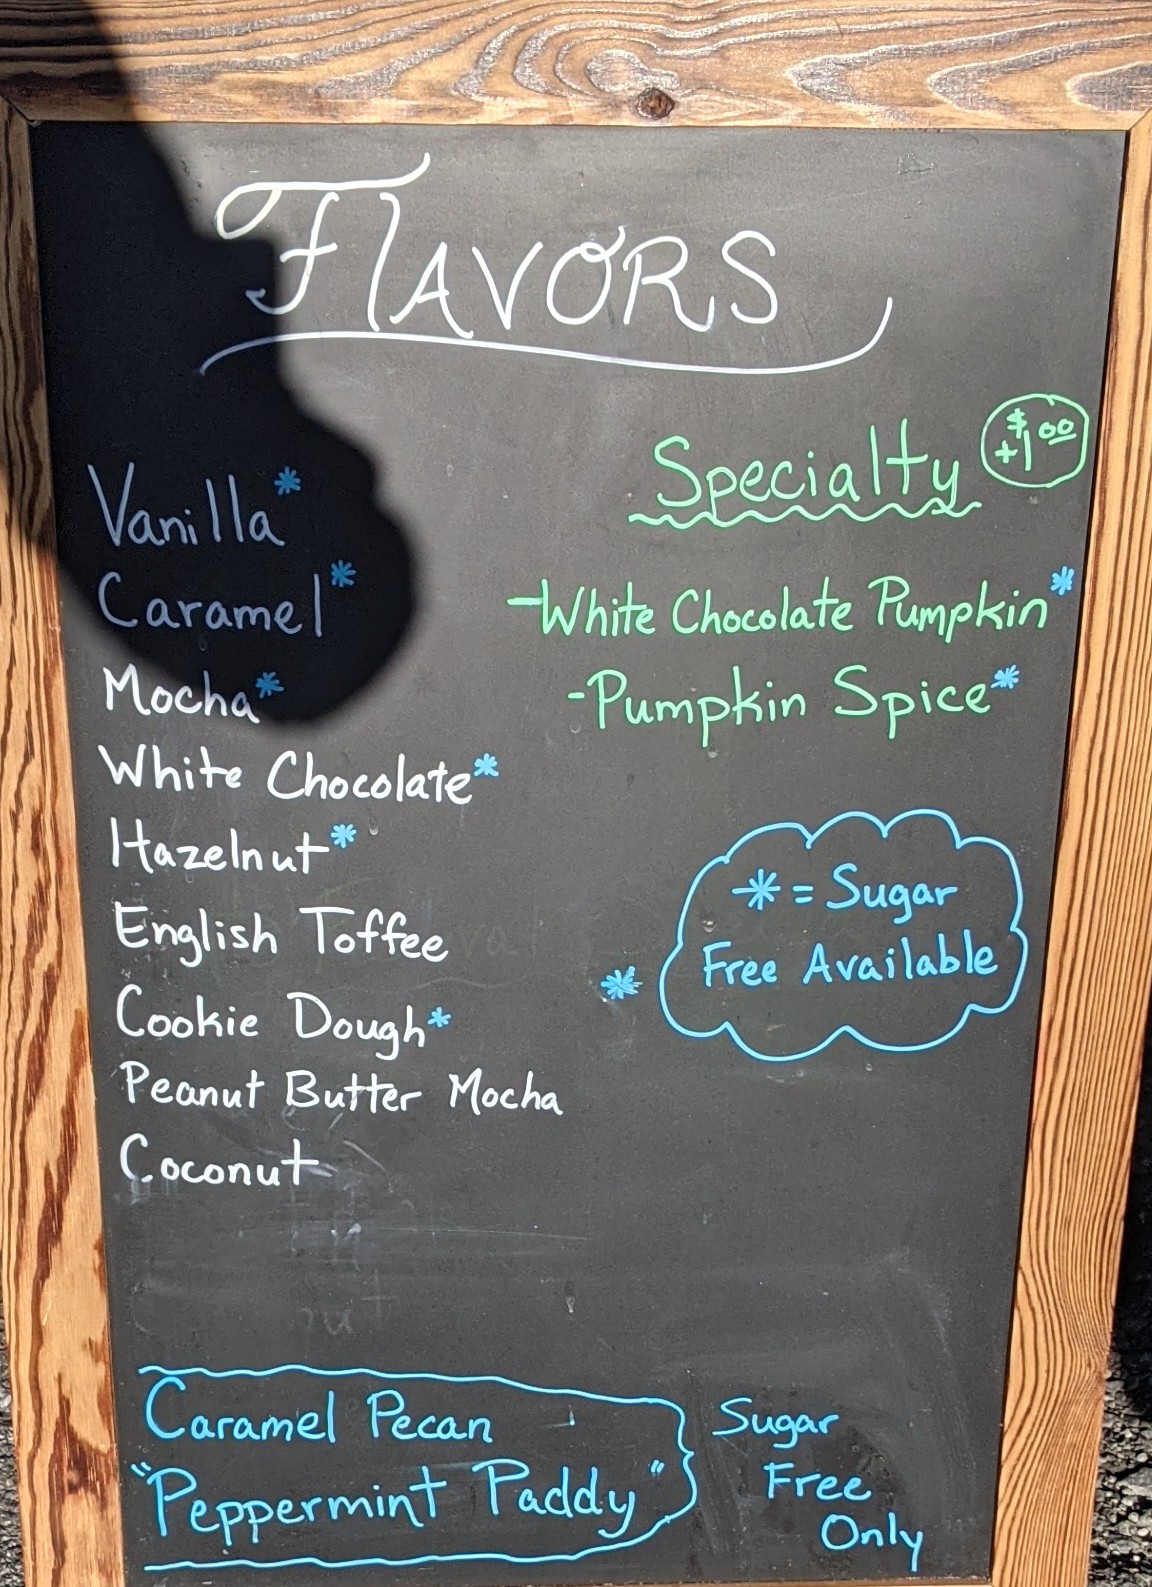 Flavors
Vanilla*
Caramel*
Mocha*
White Chocolate*
Hazelnut*
English Toffee
Cookie Dough*
Peanut Butter Mocha
Coconut
Specialty +$1.00
-White Chocolate Pumpkin*
-Pumpkin Spice*
* = Sugar
Free Available
*
Caramel Pecan
"Peppermint Paddy"
Sugar
Free
Only